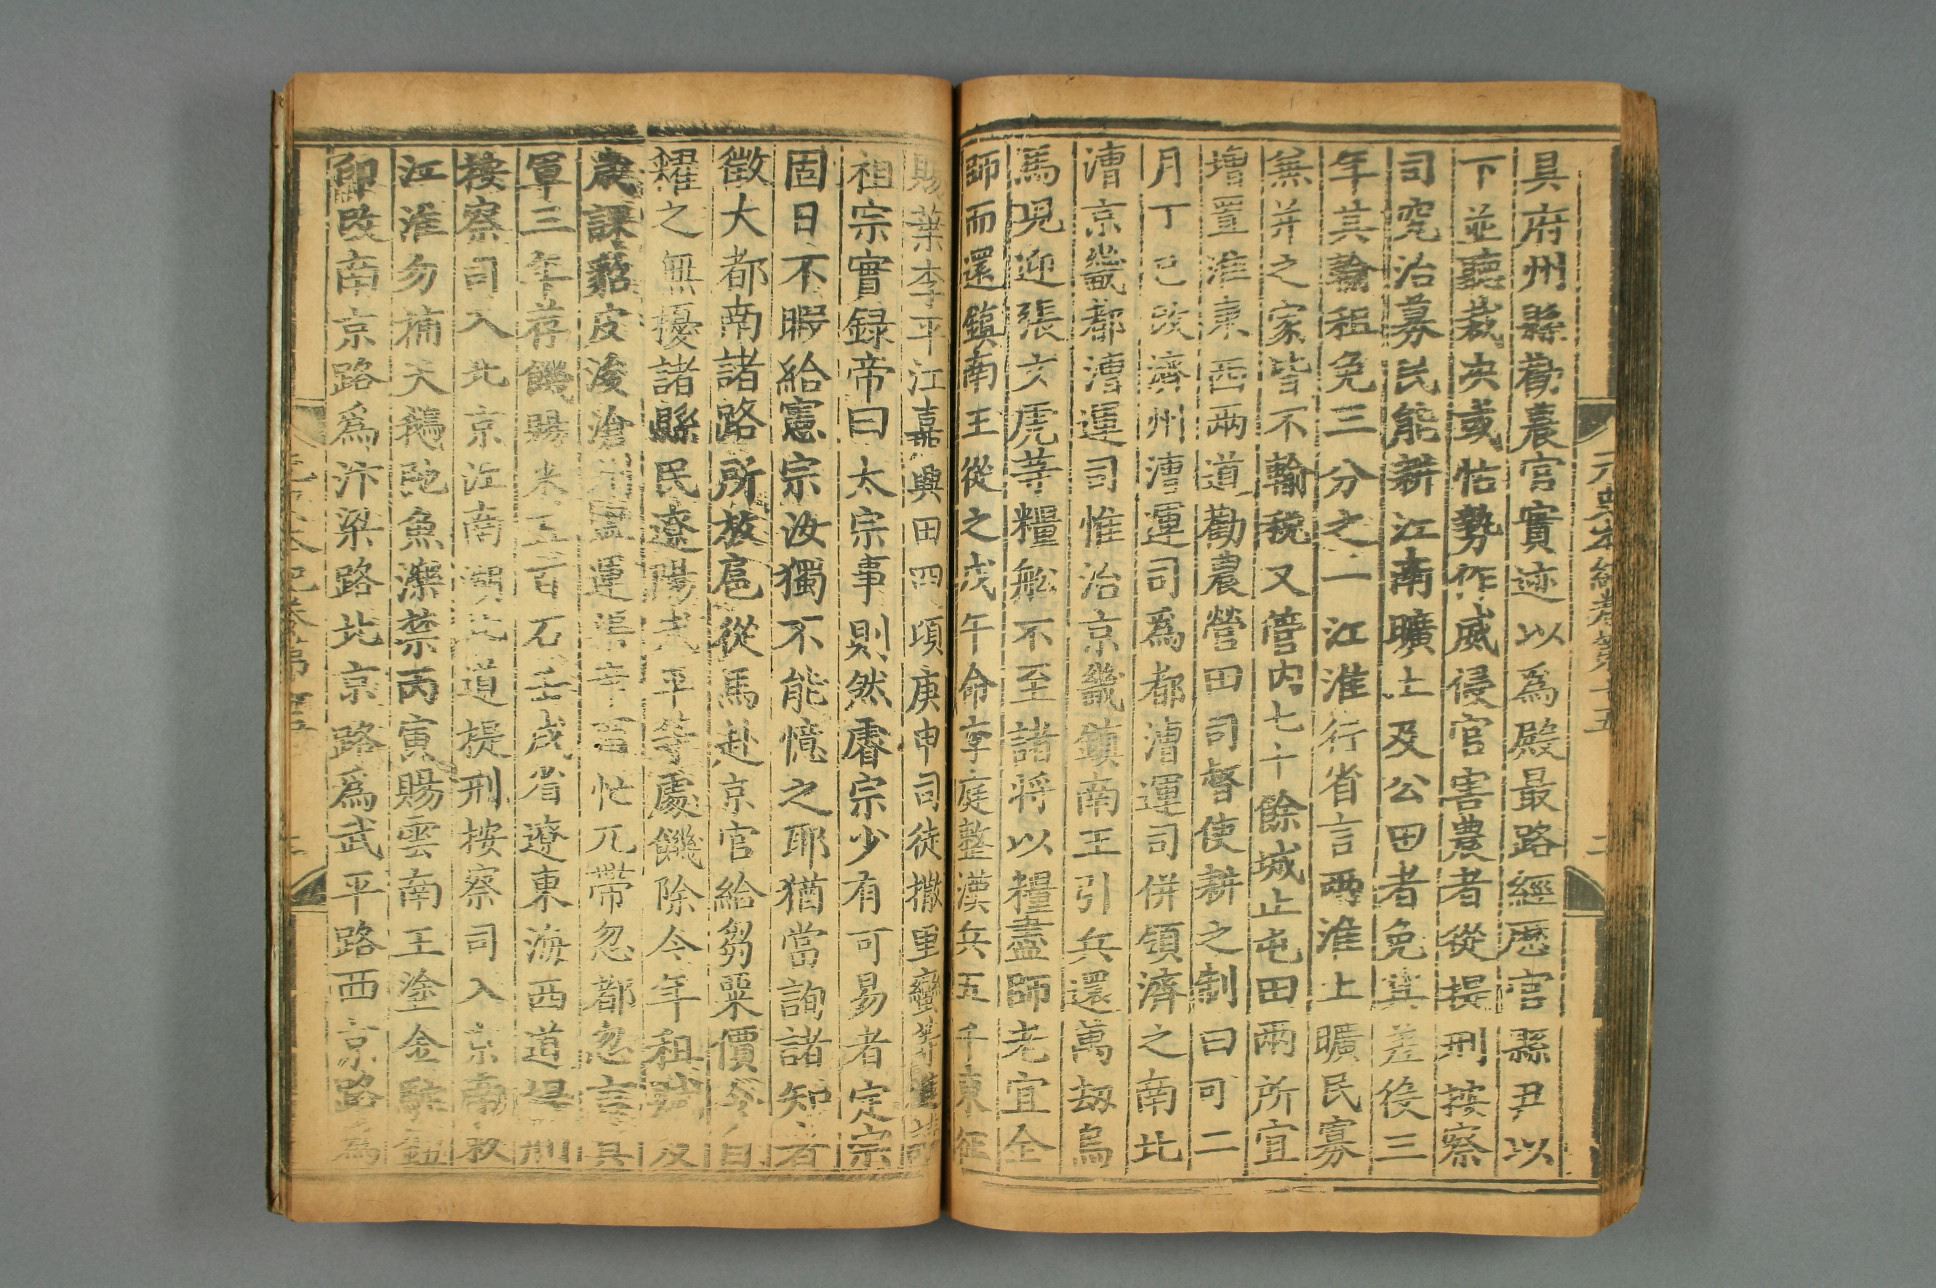 元史本紀卷第十五
具府州縣勸農官實迹以爲殿最路經歷官縣尹以
下並聽裁决或怙勢作威侵官害農者從提刑按察
司究治募民能耕江南曠土及公田者免其差役三
年其輸租免三分之一江淮行省言兩淮土曠民寡
兼并之家皆不輸稅又管内七十餘城止屯田兩所宜
增置淮東西兩道勸農營田司督使耕之制曰可二
月丁巳改濟州漕運司爲都漕運司併領濟之南北
漕京畿都漕運司惟治京畿鎮南王引兵還萬刼烏
馬兒迎張文虎等糧船不至諸將以糧盡師老宜全
師而還鎮南王從之戊午命李庭整漢兵五千東征
賜葉李平江嘉興田四頃庚申司徒撒里蠻等進讀
祖宗實録帝曰太宗事則然睿宗少有可易者定宗
固日不暇給憲宗汝獨不能憶之耶猶當詢諸知者
徵大都南諸路所放扈從馬赴京官給芻粟價令自
糴之無擾諸縣民遼陽武平等處饑除今年租賦及
歲課貂皮浚滄州鹽運渠辛酉忙兀帶忽都忽言其
軍三年荐饑賜米五百石壬戌省遼東海西道提刑
按察司入北京江南湖北道提刑按察司入京南敕
江淮勿捕天鵝弛魚濼禁丙寅賜雲南王塗金駝鈕
印改南京路爲汴梁路北京路爲武平路西京路爲